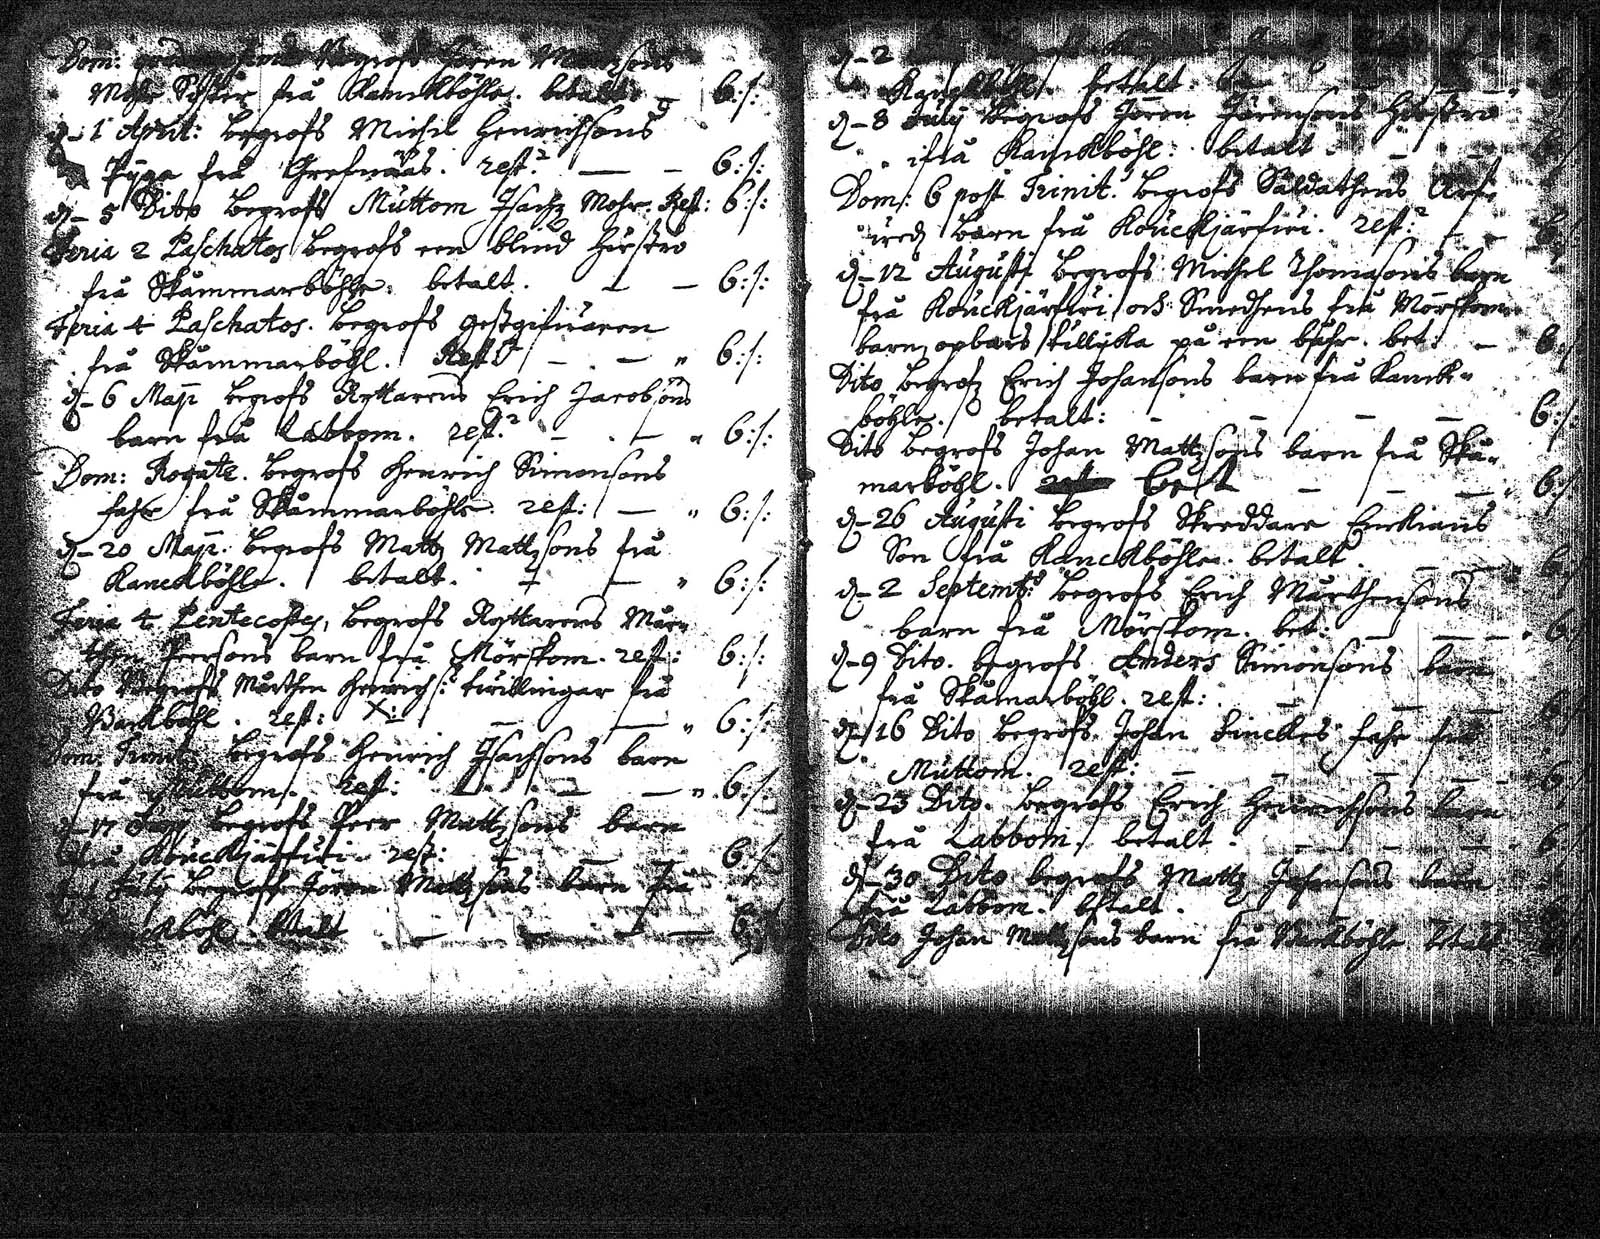 Dom: Begrofs Jören Mattzsons
Mohr Syster frå Kanckböhle. betalt. — 6:/:
d. 1 April: Begrofs Michel Henrichsons
Pyga frå Grefnääs. rest. — — 6:/:
d. 5 Dito Begrofs Muttom Isachz Mohr. Rest: 6:/:
Feria 2 Paschatos Begrofs een blind Hustro
frå Skammarböhle. betalt. — — 6:/:
Feria 4 Paschatos. Begrofs gestgifwaren
frå Skammarböhl. Rest: — — " 6:/:
d. 6 Maji Begrofs Ryttarens Erich Jacobsons
barn frå Labbom. rest. — — " 6:/:
Dom: Rogate. Begrofs Henrich Simonsons
fahr frå Skammarböhle. rest: — " 6:/:
d. 20 Maji. Begrofs Mattz Mattzsons frå
Kanckböhle. betalt. — — " 6:/:
Feria 4 Pentecostes, Begrofs Ryttarens Mår-
then Peersons barn frå Mörskom. rest: 6:/:
Dito Begrofs Mårthen Henrichs: twillingar frå
Backböhl. rest: X: — — " 6:/:
Dom: Trinit. Begrofs Henrich Isachsons barn
frå Muttom. rest: — — " 6:/:
d. 17 Begrofs Peer Mattzsons barn
frå Kouckjärfwi. rest: — — 6:/:
July Begrofs Jören Mattzsons barn frå
betalt — — — 6:/:
d. 2
Kanckböhle. betalt: — — "
d. 8 July Begrofs Jören Jörensons Hustro
ifrå Kanckböhl: betalt. — — 6:/:
Dom: 6 post Trinit. Begrofs Saldathens
barn frå Kouckjärfwi. rest: — — 6:/:
d. 12 Augusti Begrofs Michel Thomasons barn
frå Kouckjärfwi och Smedhens frå Mörskom
barn, opbars tillijka på een båhr. bet: — 6:/
Dito Begrofz Erich Johansons barn frå Kanck-
böhle. betalt: — — — — 6:/:
Dito Begrofs Johan Mattzsons barn frå Ska-
marböhl. Bet — — — " 6:/
d. 26 Augusti Begrofs Skreddare
Son frå Kanckböhle. betalt. — — " 6:/
d. 2 Septemb: Begrofs Erich Mårthensons
barn frå Mörskom. bet: — — — " 6:
d. 9 Dito. begrofs Anders Simonsons barn
frå Skamarböhl. rest: — — — 6:/
d. 16 Dito Begrofs Johan fahr frå
Muttom. rest: — — — — 6:/
d. 23 Dito. Begrofs Erich Henrichsons barn
frå Labbom. betalt. — — — 6:/
d. 30 Dito begrofs Mattz Johansons barn
frå Labbom. betalt.
Dito Johan Mattzsons barn frå Backböhle betalt